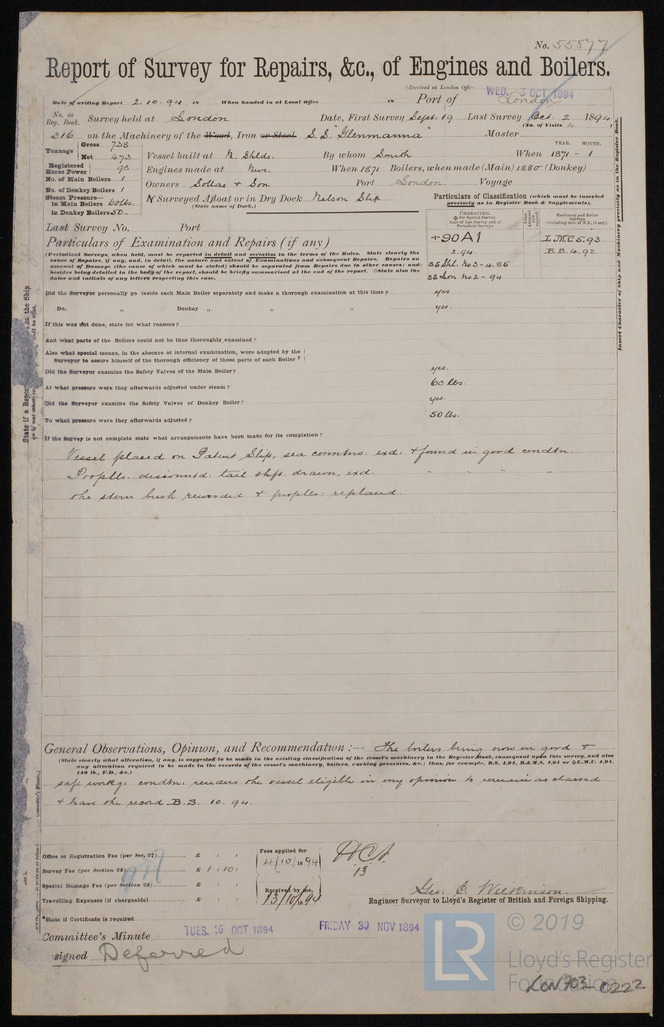 No. 55877
Report of Survey for Repairs, &c., of Engines and Boilers.
(Received at London Office WED. 3 OCT. 1894)
Date of writing Report 2.10.94 in When handed in at Local Office in Port of London
No. in Reg. Book. Survey held at London Date, First Survey Sept. 19 Last Survey Oct. 2 1894
(No. of Visits 4)
316 on the Machinery of the Wood, Iron or Steel S.S. Glenmanna Master
Tonnage Gross 738 Net 473
Vessel built at N. Shlds. By whom Smith When 1871 - 1
YEAR. MONTH.
Registered Horse Power 98
Engines made at Nwc. When 1871 Boilers, when made (Main) 1880 (Donkey)
No. of Main Boilers 1
No. of Donkey Boilers 1
Owners Sollas & Son Port London Voyage
Steam Pressure— in Main Boilers 60 lbs.
in Donkey Boilers 50.
If Surveyed Afloat or in Dry Dock Nelson Slip
(State name of Dock.)
Particulars of Classification (which must be inserted precisely as in Register Book & Supplements).
Last Survey No. Port
+90A1
2.94
SS Shl. No3-4.86
SS Lon No2-94
LMC 5.93
B.S. 4.92
Particulars of Examination and Repairs (if any)
(Periodical Surveys, when held, must be reported in detail and seriatim in the terms of the Rules. State clearly the
name of Repairs, if any, and, in detail, the nature and extent of Examinations and subsequent Repairs. Repairs on
account of Damage (the cause of which must be stated) should be separated from Repairs due to other causes; and
besides being detailed in the body of the report, should be briefly summarised at the end of the report. State also the
dates and initials of any letters respecting this case.
Did the Surveyor personally go inside each Main Boiler separately and make a thorough examination at this time? yes
Do. „ Donkey „ „ „ yes
If this was not done, state for what reasons?
And what parts of the Boilers could not be thus thoroughly examined?
Also what special means, in the absence of internal examination, were adopted by the
Surveyor to assure himself of the thorough efficiency of those parts of each Boiler?
Did the Surveyor examine the Safety Valves of the Main Boiler? yes.
At what pressure were they afterwards adjusted under steam? 60 lbs.
Did the Surveyor examine the Safety Valves of Donkey Boiler? yes.
To what pressure were they afterwards adjusted? 50 lbs.
If the Survey is not complete state what arrangements have been made for its completion?
Vessel placed on Patent Slip, sea conntns. exd. & found in good condtn.
Propllr. disconntd. tail shft. drawn, exd. " " " "
the stern bush rewooded & propllr. replaced.
General Observations, Opinion, and Recommendation :— The boilers being now in good &
(State clearly what alteration, if any, is suggested to be made in the existing classification of the vessel's machinery in the Register Book, consequent upon this survey, and also
any alteration required to be made in the records of the vessel's machinery, boilers, working pressures, &c.; thus, for example, B.S. 4,94, B.&M.S. 4,94 or L.M.C. 4,94,
140 lb., F.D., &c.)
safe workg. condtn. renders the vessel eligible in my opinion to remain as classed
& have the record B.S. 10.94.
Office or Registration Fee (per Sec. 27) £ : :
Survey Fee (per Section 28) £ 1 : 10 :
Special Damage Fee (per Section 28) £ : :
Travelling Expenses (if chargeable) £ : :
Fees applied for
4/10/1894
Received by me,
13/10/1894
Geo. C. Wilkinson
Engineer Surveyor to Lloyd's Register of British and Foreign Shipping.
*State if Certificate is required
Committee's Minute TUES. 16 OCT 1894 FRIDAY 30 NOV 1894
signed Deferred
LR
© 2019
Lloyd's Register
Foundation
LON703-0222
Insert Character of Ship and Machinery precisely as in the Register Book.